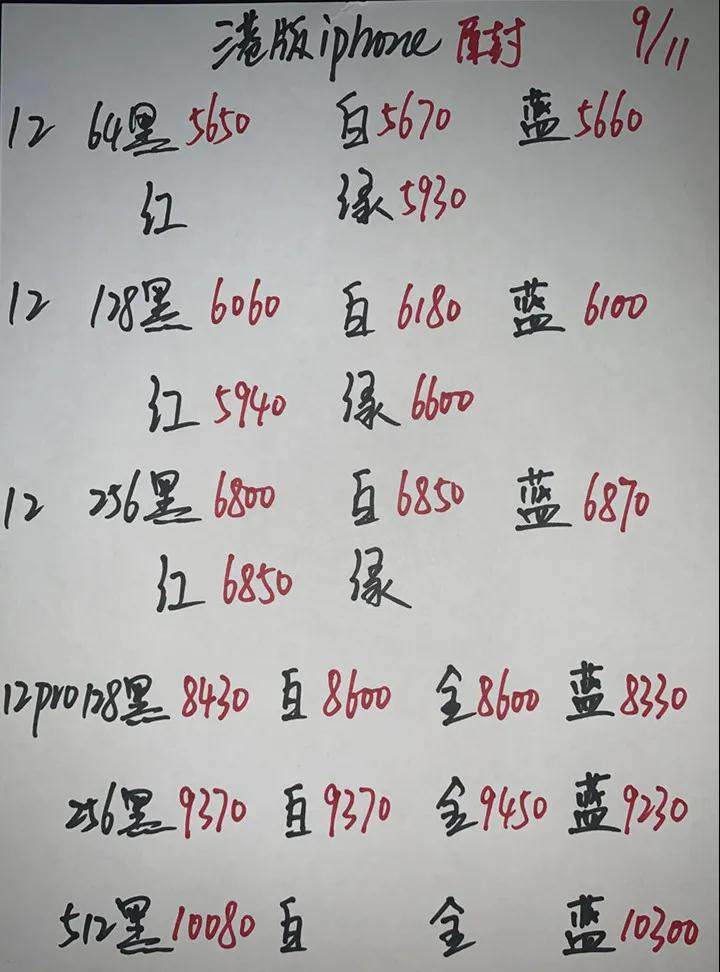 港版iphone 原封 9/11
12 64黑5650 白5670 蓝5660
红 绿5930
12 128黑 6060 白 6180 蓝 6100
红 5940 绿 6600
12 256黑 6800 白 6850 蓝 6870
红 6850 绿
12pro128黑 8430 白 8600 金8600 蓝 8330
256黑 9370 白 9370 金9450 蓝 9230
512黑10080 白 金 蓝 10300